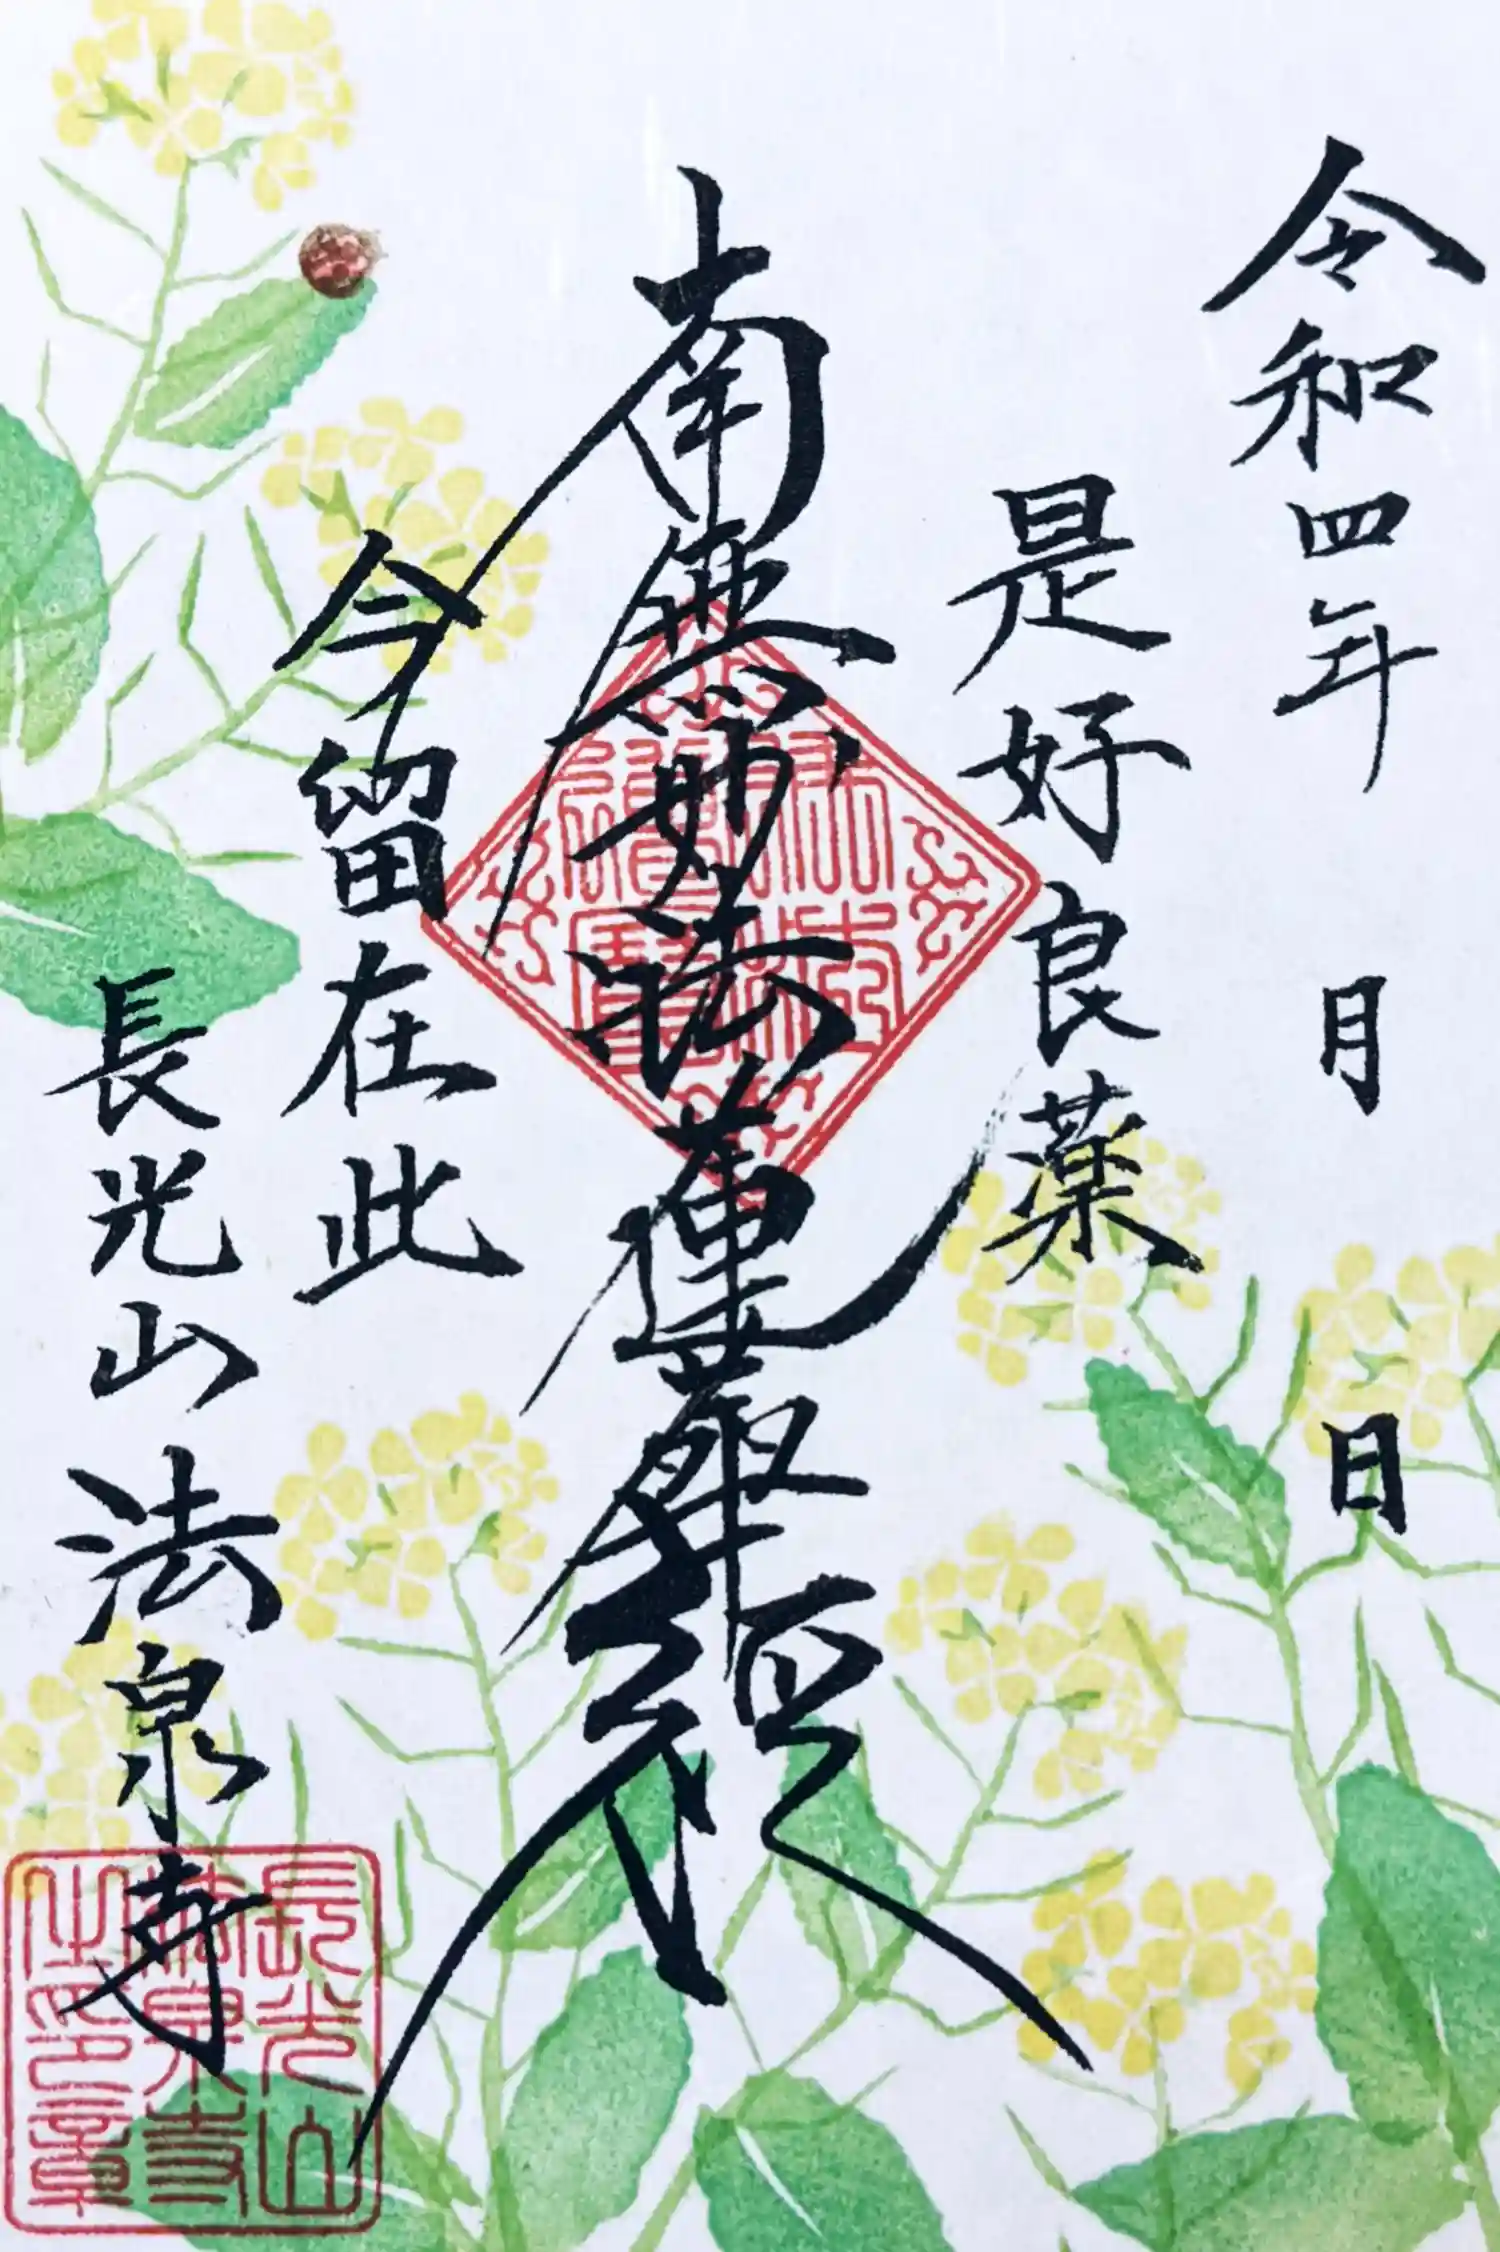 令和四年 月 日
是好良薬
南無妙法蓮華経
今留在此
長光山法泉寺
長光山
法泉寺
之印章